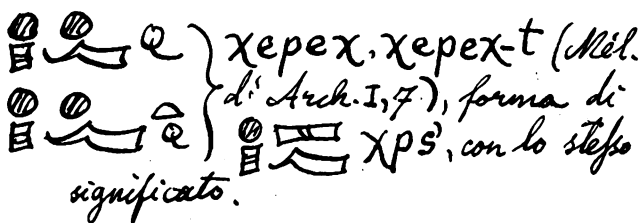 χερεχ, χερεχ-t (Mél.
d'Arch. I, 7.), forma di
χρś, con lo stesso
significato.